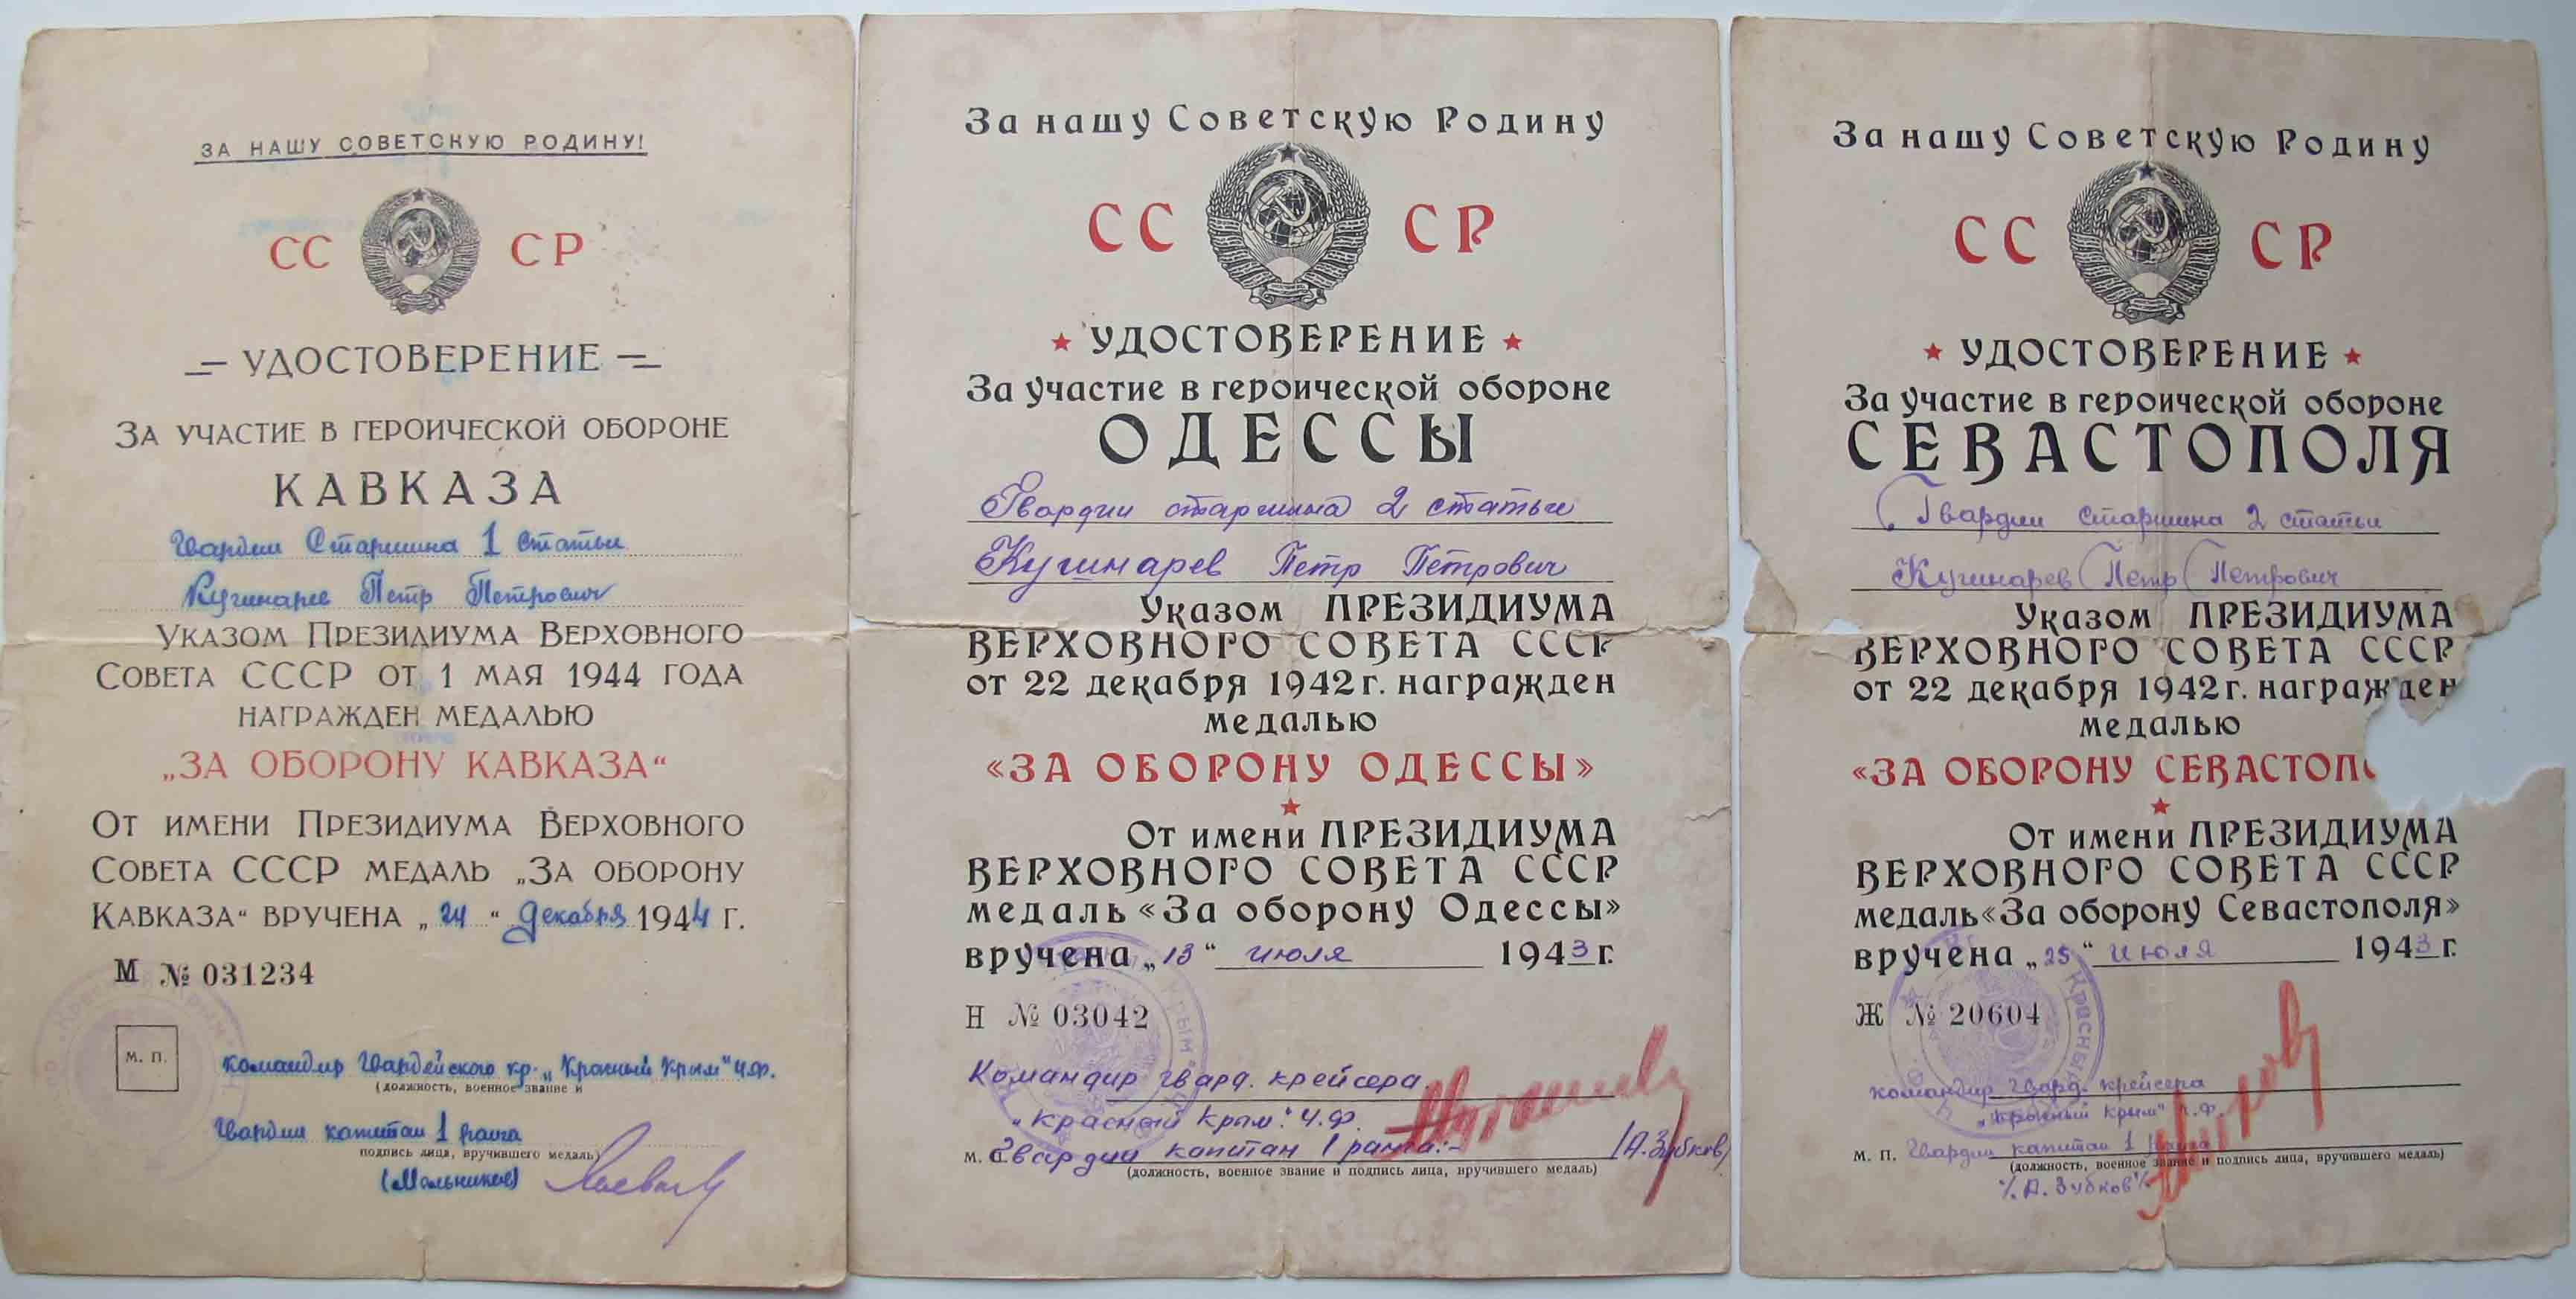 ЗА НАШУ СОВЕТСКУЮ РОДИНУ!
СС СР
УДОСТОВЕРЕНИЕ
ЗА УЧАСТИЕ В ГЕРОИЧЕСКОЙ ОБОРОНЕ
КАВКАЗА
Гвардии Старшина 1 Статьи
Кушнарев Петр Петрович
УКАЗОМ ПРЕЗИДИУМА ВЕРХОВНОГО
СОВЕТА СССР ОТ 1 МАЯ 1944 ГОДА
НАГРАЖДЕН МЕДАЛЬЮ
„ЗА ОБОРОНУ КАВКАЗА“
ОТ ИМЕНИ ПРЕЗИДИУМА ВЕРХОВНОГО
СОВЕТА СССР МЕДАЛЬ „ЗА ОБОРОНУ
КАВКАЗА“ ВРУЧЕНА „24“ декабря 1944 Г.
М № 031234
М. П.
командир Гвардейского кр. „Красный Крым“ Ч.Ф.
(должность, военное звание и
Гвардии капитан 1 ранга
подпись лица, вручившего медаль)
(Мельников)
За нашу Советскую Родину
СС СР
УДОСТОВЕРЕНИЕ
За участие в героической обороне
ОДЕССЫ
Гвардии старшина 2 статьи
Кушнарев Петр Петрович
Указом ПРЕЗИДИУМА
ВЕРХОВНОГО СОВЕТА СССР
от 22 декабря 1942 г. награжден
медалью
«ЗА ОБОРОНУ ОДЕССЫ»
От имени ПРЕЗИДИУМА
ВЕРХОВНОГО СОВЕТА СССР
медаль «За оборону Одессы»
вручена „13“ июля 1943 г.
Н № 03042
Командир гвард. крейсера
„Красный Крым“ Ч.Ф.
м. п. Гвардии капитан 1 ранга:- /А.Зубков/
(должность, военное звание и подпись лица, вручившего медаль)
За нашу Советскую Родину
СС СР
УДОСТОВЕРЕНИЕ
За участие в героической обороне
СЕВАСТОПОЛЯ
Гвардии Старшина 2 статьи
Кушнарев Петр Петрович
Указом ПРЕЗИДИУМА
ВЕРХОВНОГО СОВЕТА СССР
от 22 декабря 1942 г. награжден
медалью
«ЗА ОБОРОНУ СЕВАСТОП
От имени ПРЕЗИДИУМА
ВЕРХОВНОГО СОВЕТА СССР
медаль «За оборону Севастополя»
вручена „25“ июля 1943 г.
Ж № 20604
командир Гвард. крейсера
„Красный Крым“ Ч.Ф.
м. п. Гвардии капитан 1 ранга
(должность, военное звание и подпись лица, вручившего медаль)
/А. Зубков/